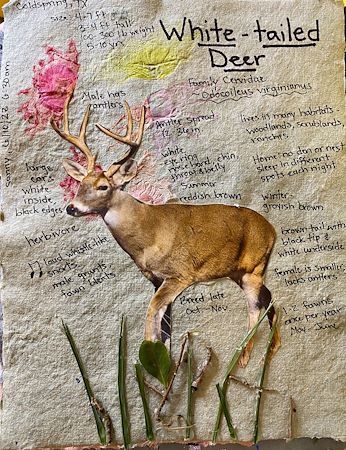 Coldspring, TX
size: 4-7 ft.
3-4 ft tall
300 lb weight
5-10 yrs
sunny 6/10/23 6:30am
White-tailed
Deer
Family Cervidae
Odocoileus virginianus
Male has
antlers
Antler Spread
12-26 in
white
nose band, chin,
throat & belly
Summer
reddish brown
lives in many habitats
woodlands, scrublands,
Home: no den or nest
sleep in different
spots each night
Winter-
grayish brown
large
ears
white
inside
black edges
herbivore
loud whistle-like
snorts
male grunts
fawn bleats
Breed late
Oct-Nov
brown tail with
black tip &
white underside
female is smaller
lacks antlers
1-3 fawns
once per year
May-June